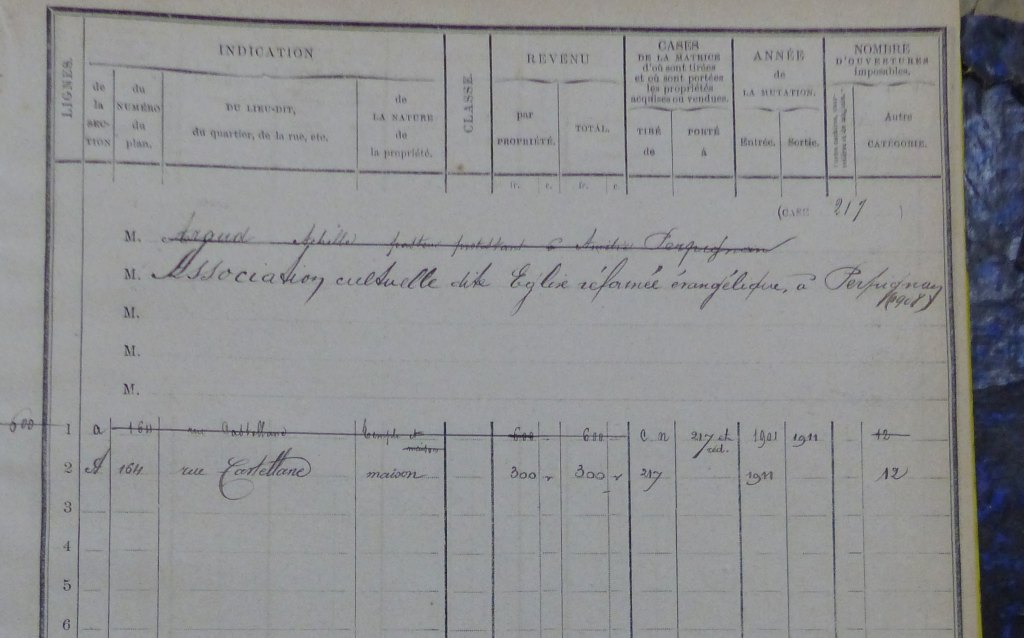 LIGNES.
INDICATION
de la SEC-TION
du NUMÉRO du plan.
DU LIEU-DIT, du quartier, de la rue, etc.
de LA NATURE de la propriété.
CLASSE.
REVENU
par PROPRIÉTÉ.
TOTAL.
CASES DE LA MATRICE d'où sont tirées et où sont portées les propriétés acquises ou vendues.
TIRÉ de
PORTÉ à
ANNÉE de LA MUTATION.
Entrée.
Sortie.
NOMBRE D'OUVERTURES imposables.
Autre CATÉGORIE.
fr. c. fr. c.
(CASE 217 )
M. Argaud Achille pasteur protestant à Perpignan
M. Association cultuelle dite Eglise réformée évangélique, à Perpignan
(1908)
M.
M.
M.
600 1 a 164 rue Castellane temple et maison 600 600 C. n 217 et réd. 1901 1911 12
2 A 164 rue Castellane maison 300 300 217 1911 12
3
4
5
6